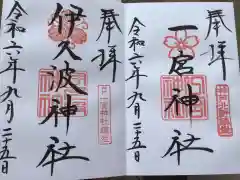 奉拝
一宮神社
令和六年九月二十五日
奉拝
伊久波神社
令和六年九月二十五日